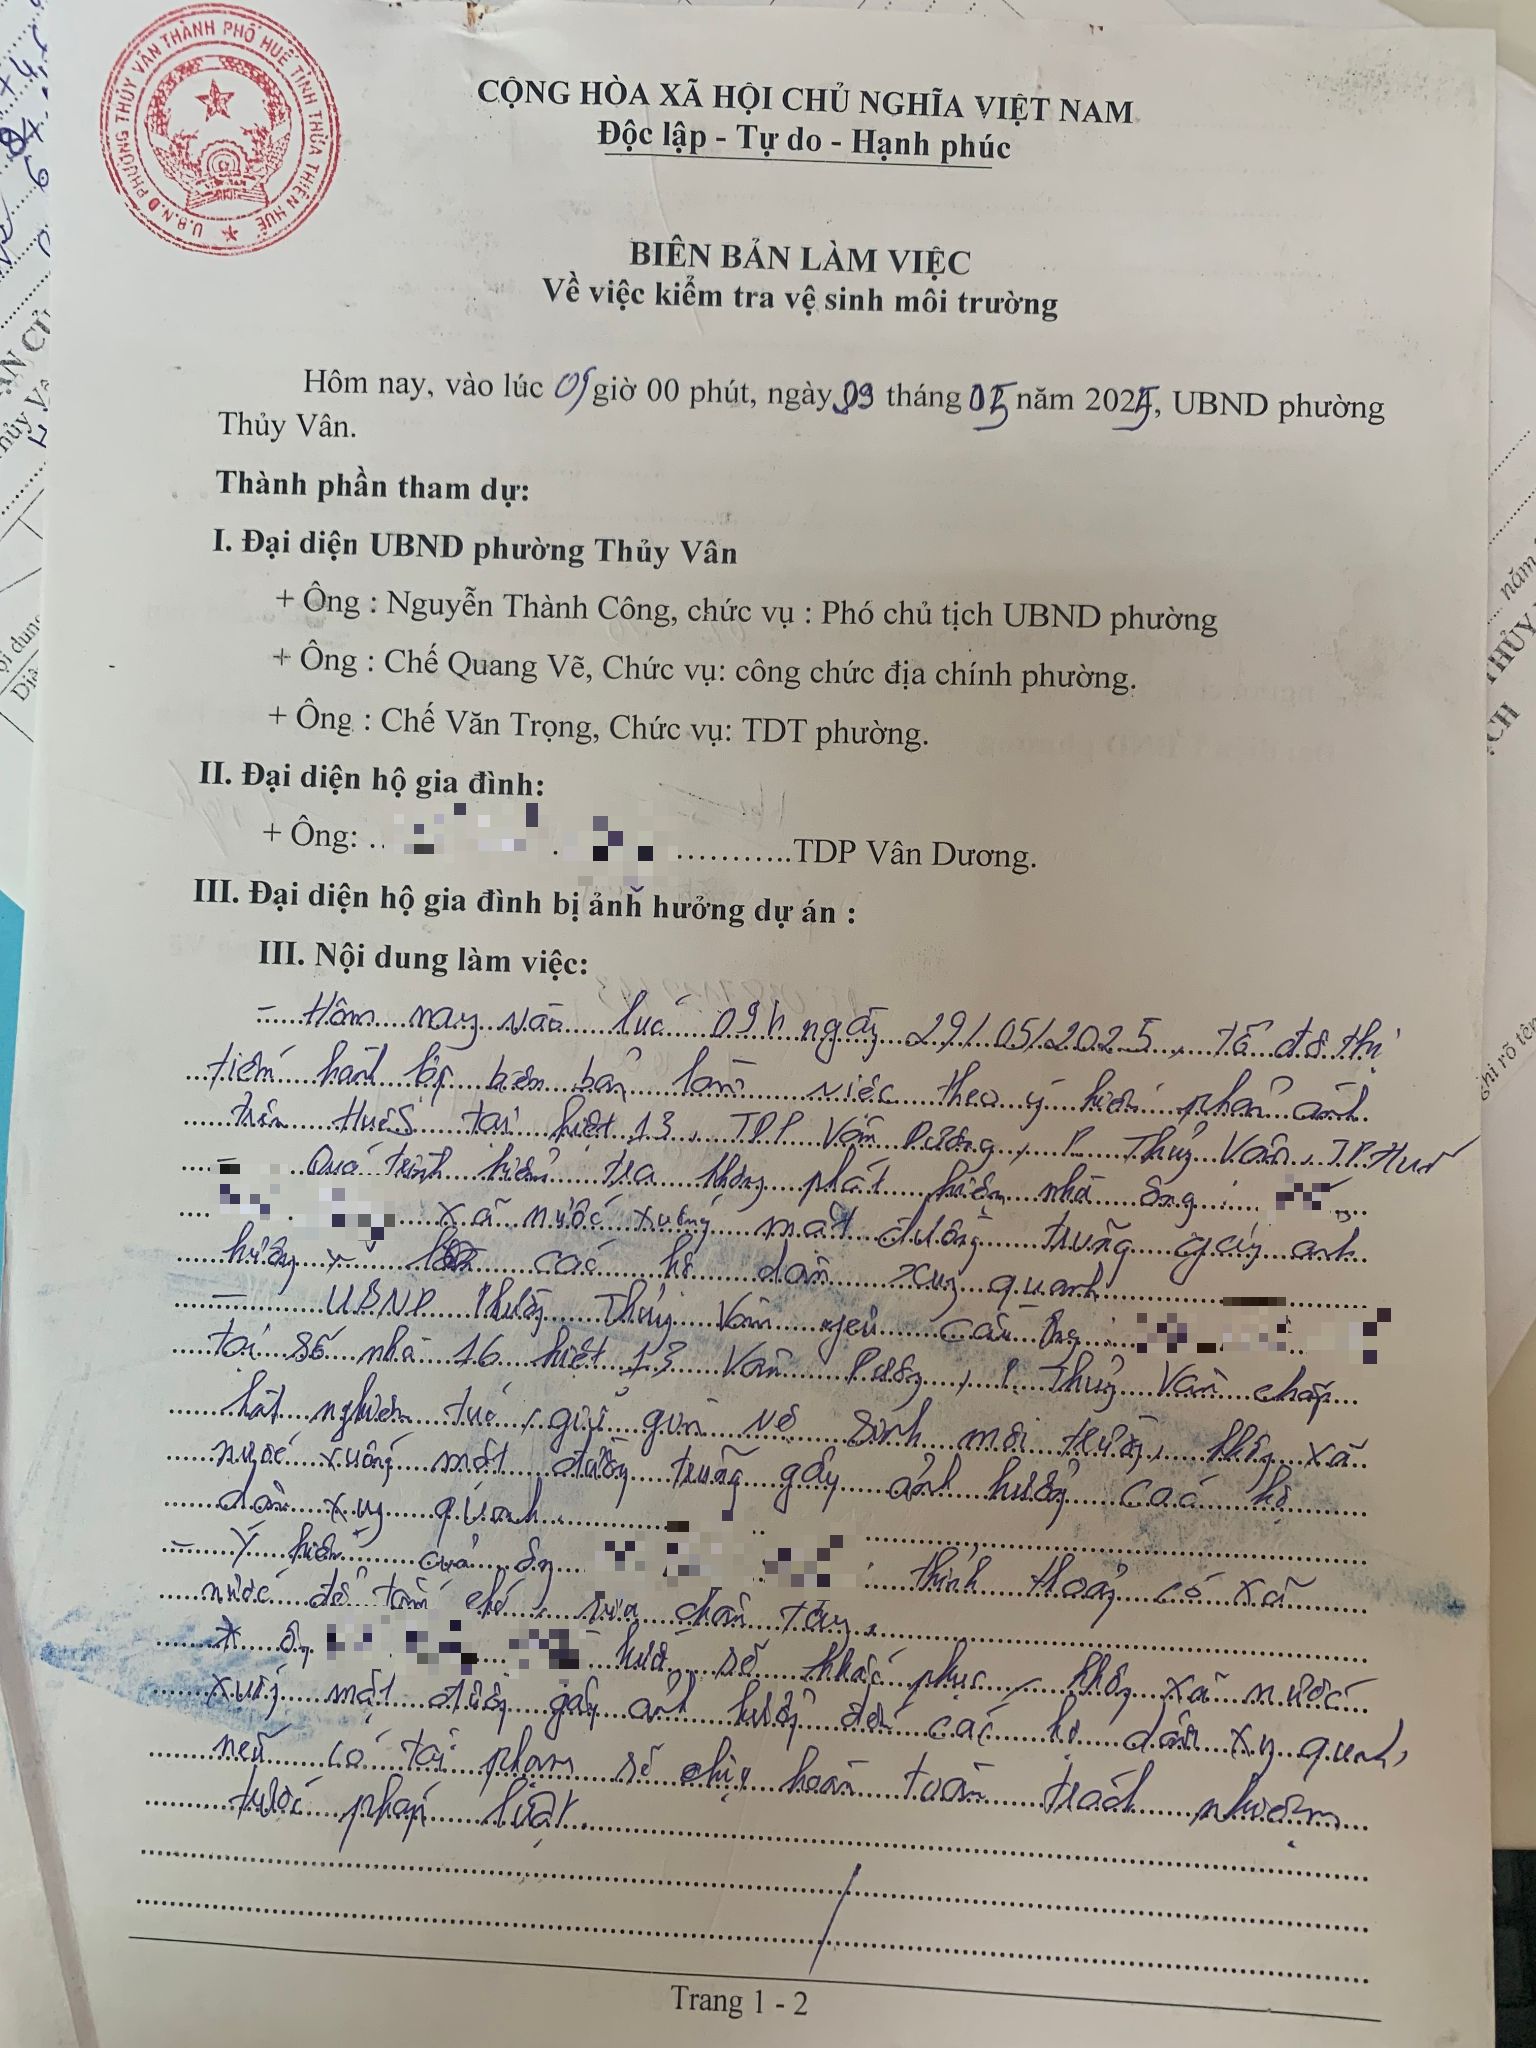 U.B.N.D PHƯỜNG THỦY VÂN THÀNH PHỐ HUẾ TỈNH THỪA THIÊN HUẾ
CỘNG HÒA XÃ HỘI CHỦ NGHĨA VIỆT NAM
Độc lập - Tự do - Hạnh phúc
BIÊN BẢN LÀM VIỆC
Về việc kiểm tra vệ sinh môi trường
Hôm nay, vào lúc giờ 00 phút, ngày tháng 05 năm 2025, UBND phường
Thủy Vân.
Thành phần tham dự:
I. Đại diện UBND phường Thủy Vân
+ Ông : Nguyễn Thành Công, chức vụ : Phó chủ tịch UBND phường
+ Ông : Chế Quang Vẽ, Chức vụ: công chức địa chính phường.
+ Ông : Chế Văn Trọng, Chức vụ: TDT phường.
II. Đại diện hộ gia đình:
+ Ông: TDP Vân Dương.
III. Đại diện hộ gia đình bị ảnh hưởng dự án :
III. Nội dung làm việc:
- Hôm nay vào lúc 09h ngày 29/05/2025, tổ đô thị
tiến hành lập biên bản làm việc theo ý kiến phản ánh
trên HueS tại kiệt 13, TDP Vân Dương, P. Thủy Vân, TP Huế
- Quá trình kiểm tra không phát hiện nhà ông :
xã nước xuống mặt đường trũng gây anh
hưởng các hộ dân xung quanh
- UBND Phường Thủy Vân yêu cầu ông :
tại số nhà 16 kiệt 13 Vân Dương, P. Thủy Vân chấp
hàt nghiêm túc, giữ gìn vệ sinh môi trường, không xã
nước xuống mặt đường trũng gây ảnh hưởng các hộ
dân xung quanh.
- Ý kiến của ông : thỉnh thoảng có xã
nước để tắm chó, rửa chân tay.
* Ông hứa sẽ khắc phục, không xã nước
xuống mặt đường gây ảnh hưởng đến các hộ dân xung quanh,
nếu có tái phạm sẽ chịu hoàn toàn trách nhiệm
trước pháp luật.
Trang 1 - 2